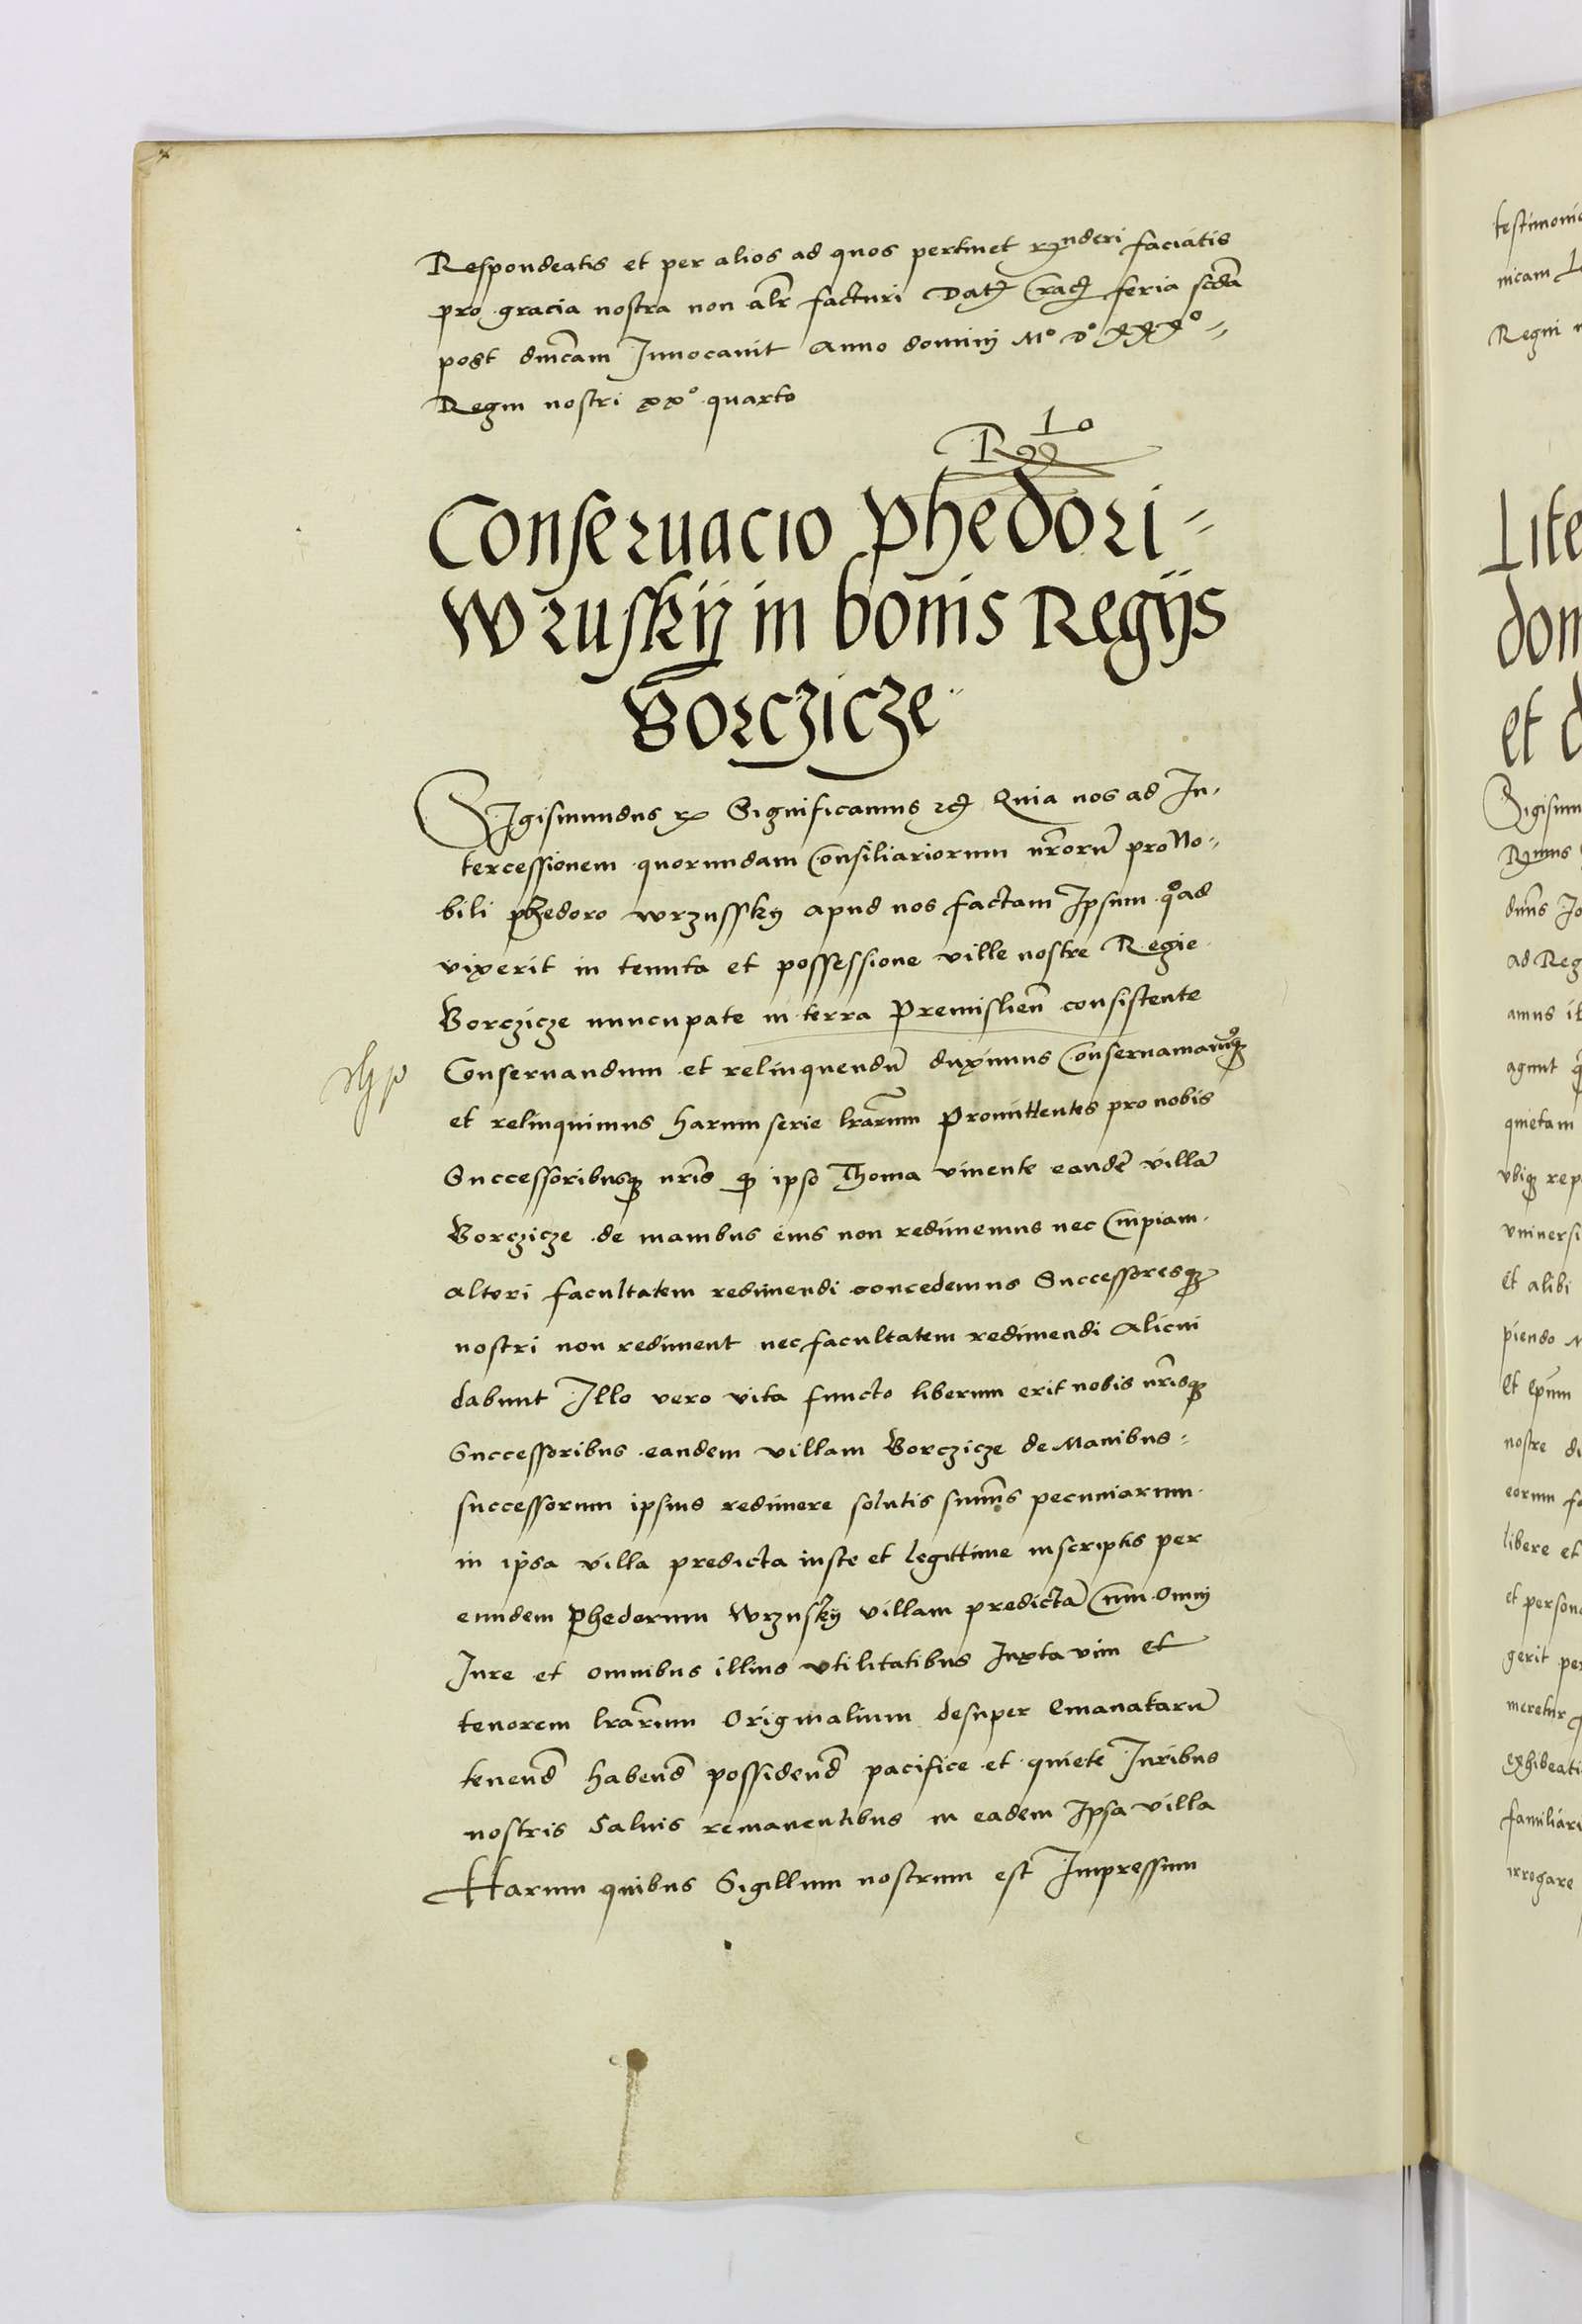 Respondeatis et per alios ad quos pertinet rñnderi faciatis
pro gracia nostra non alr facturi Datꝭ Cracꝭ feria scda
post dnicam Invocavit Anno dominij Mº Dº XXXº
Regni nostri xxº quarto
Conservacio Phedori
Wruskij in bonis Regijs
Borczicze
Sigismundus rx Significamus rcꝭ Quia nos ad In-
tercessionem quorundam Consiliariorum nrorū pro No-
bili phedoro wrzussky apud nos factam Ipsum qoad
vixerit in tenuta et possessione ville nostre Regie
Borczicze nuncupate in terra Premislien consistente
Conservandum et relinquendū duximus Conservamusqꝫ
et relinquimus harum serie lrarum Promittentes pro nobis
Successoribusqꝫ nris qꝫ ipso Thoma vivente eandē villā
Borczicze de manibus eius non redimemus nec Cuipiam
alteri facultatem redimendi concedemus Successoresqꝫ
nostri non rediment nec facultatem redimendi Alicui
dabunt Illo vero vita functo liberum erit nobis nrisqꝫ
Successoribus eandem villam Borczicze de Manibus
successorum ipsius redimere solutis summis pecuniarum
in ipsa villa predicta iuste et legittime inscriptis per
eundem Phederum Wrzusky villam predictā Cum Omnj
Iure et omnibus illius vtilitatibus Iuxta vim et
tenorem lrarum Originalium desuper Emanatarū
tenend habend possidend pacifice et quiete Iuribus
nostris Salvis remanentibus in eadem Ipsa villa
Harum quibus Sigillum nostrum est Impressum
Lite
dom
et d